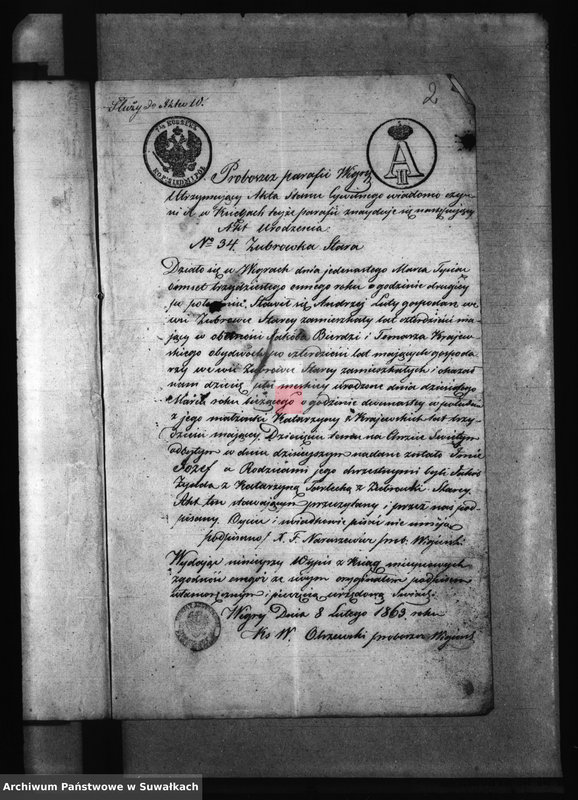 Służy do Aktu 10.
2
7½ KOPIEJKI
Proboszcz parafii Węgry
Utrzymujący Akta Stanu Cywilnego wiadomo czy-
ni iż w Księgach tejże parafii znajduje się następujący
Akt Urodzenia
No 34. Zubrowka Stara
Działo się w Węgrach dnia jedenastego Marca Tysiąc
ośmset trzydziestego ósmego roku o godzinie drugiej
po południu. Stawił się Andrzej Luty gospodarz we
wsi Zubrowie Starej zamieszkały lat czterdzieści ma-
jący w obecności Jakóba Burdzi i Tomasza Krajew-
skiego obydwóch po czterdzieści lat mających gospoda-
rzy we wsi Zubrowie Starej zamieszkałych i okazał
nam dziecię płci męskiej urodzone dnia dziesiątego
Marca roku bieżącego o godzinie dwunastej w południe
z jego małżonki Katarzyny z Krajewskich lat trzy-
dzieści mającej. Dziecięciu temu na Chrzcie Świętym
odbytym w dniu dzisiejszym nadane zostało Imie
Józef a Rodzicami jego chrzestnymi byli
z Katarzyną z Zubrowki Starej.
Akt ten stawającym przeczytany i przez nas pod-
pisany. Ojciec i świadkowie pisać nie umieją
podpisano / X. F.
Wydając niniejszy Wypis z Ksiąg miejscowych
zgodność onegóż ze swym oryginałem podpisem
własnoręcznym i pieczęcią urzędową
Węgry Dnia 8 Lutego 1863 roku
Ks W. Olszewski proboszcz
Archiwum Państwowe w Suwałkach